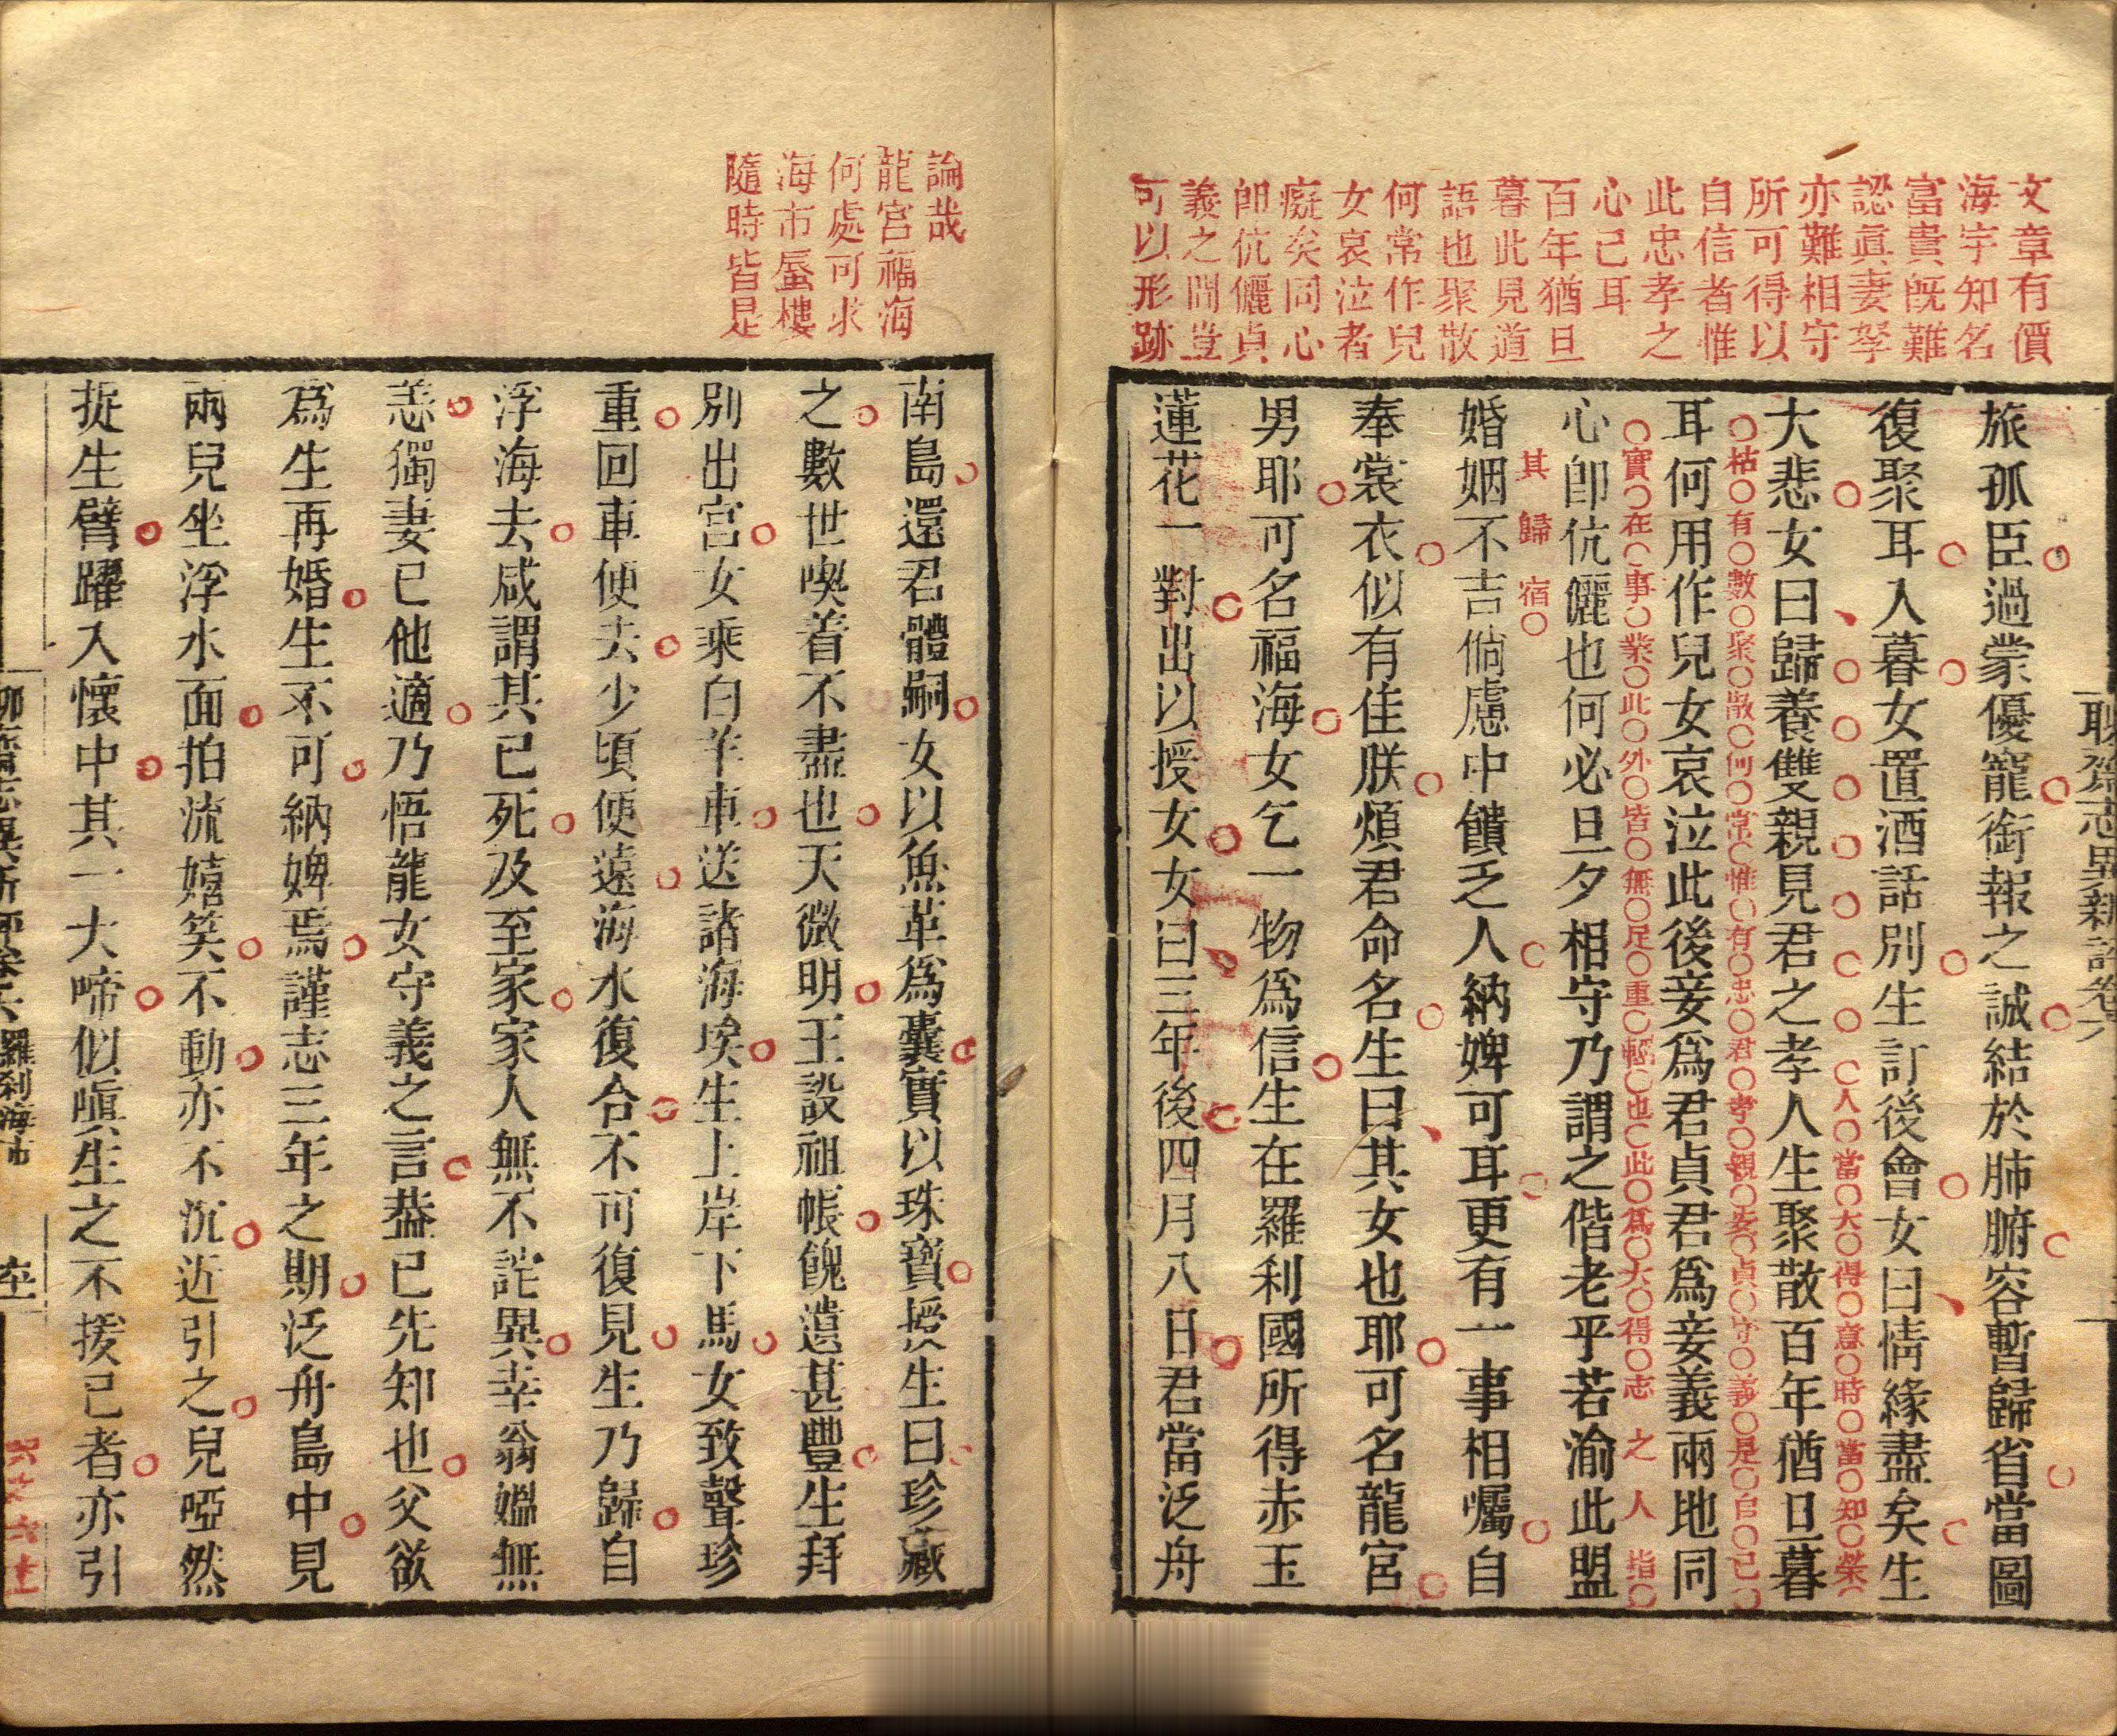 聊齋志異新評卷六
文章有價
海宇知名
富貴既難
認眞妻孥
亦難相守
所可得以
自信者惟
此忠孝之
心已耳
百年猶旦
暮此見道
語也聚散
何常作兒
女哀泣者
癡矣同心
卽伉儷貞
義之間豈
可以形跡
旅孤臣過蒙優寵銜報之誠結於肺腑容暫歸省當圖
復聚耳入暮女置酒話別生訂後會女曰情緣盡矣生
人當大得意時當知榮
大悲女曰歸養雙親見君之孝人生聚散百年猶旦暮
枯有數聚散何常惟有忠君孝親委貞守義是自己
耳何用作兒女哀泣此後妾爲君貞君爲妾義兩地同
實在事業此外皆無足重輕也此爲大得志之人指
心卽伉儷也何必旦夕相守乃謂之偕老乎若渝此盟
其歸宿
婚姻不吉倘慮中饋乏人納婢可耳更有一事相囑自
奉裳衣似有佳朕煩君命名生曰其女也耶可名龍宮
男耶可名福海女乞一物爲信生在羅刹國所得赤玉
蓮花一對出以授女女曰三年後四月八日君當泛舟
論哉
龍宮福海
何處可求
海市蜃樓
隨時皆是
南島還君體嗣女以魚革爲囊實以珠寶授生曰珍藏
之數世喫着不盡也天微明王設祖帳餽遺甚豐生拜
別出宮女乘白羊車送諸海涘生上岸下馬女致聲珍
重回車便去少頃便遠海水復合不可復見生乃歸自
浮海去咸謂其已死及至家家人無不詫異幸翁媼無
恙獨妻已他適乃悟龍女守義之言葢已先知也父欲
爲生再婚生不可納婢焉謹志三年之期泛舟島中見
兩兒坐浮水面拍流嬉笑不動亦不沉近引之兒啞然
捉生臂躍入懷中其一大啼似嗔生之不援已者亦引
聊齋志異新評卷六 羅刹海市